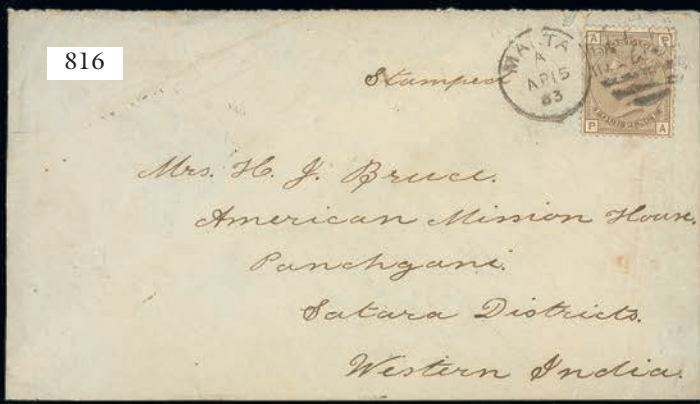 816
Stamped
MALTA
A
AP 15
83
A P
P A
Mrs. H. J. Bruce.
American Mission House.
Panchgani.
Satara Districts.
Western India.